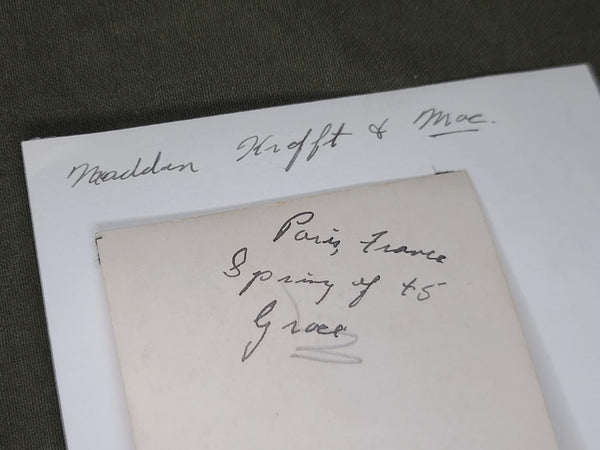 Madden Krofft & Mac.
Paris, France
Spring of 45
Grace